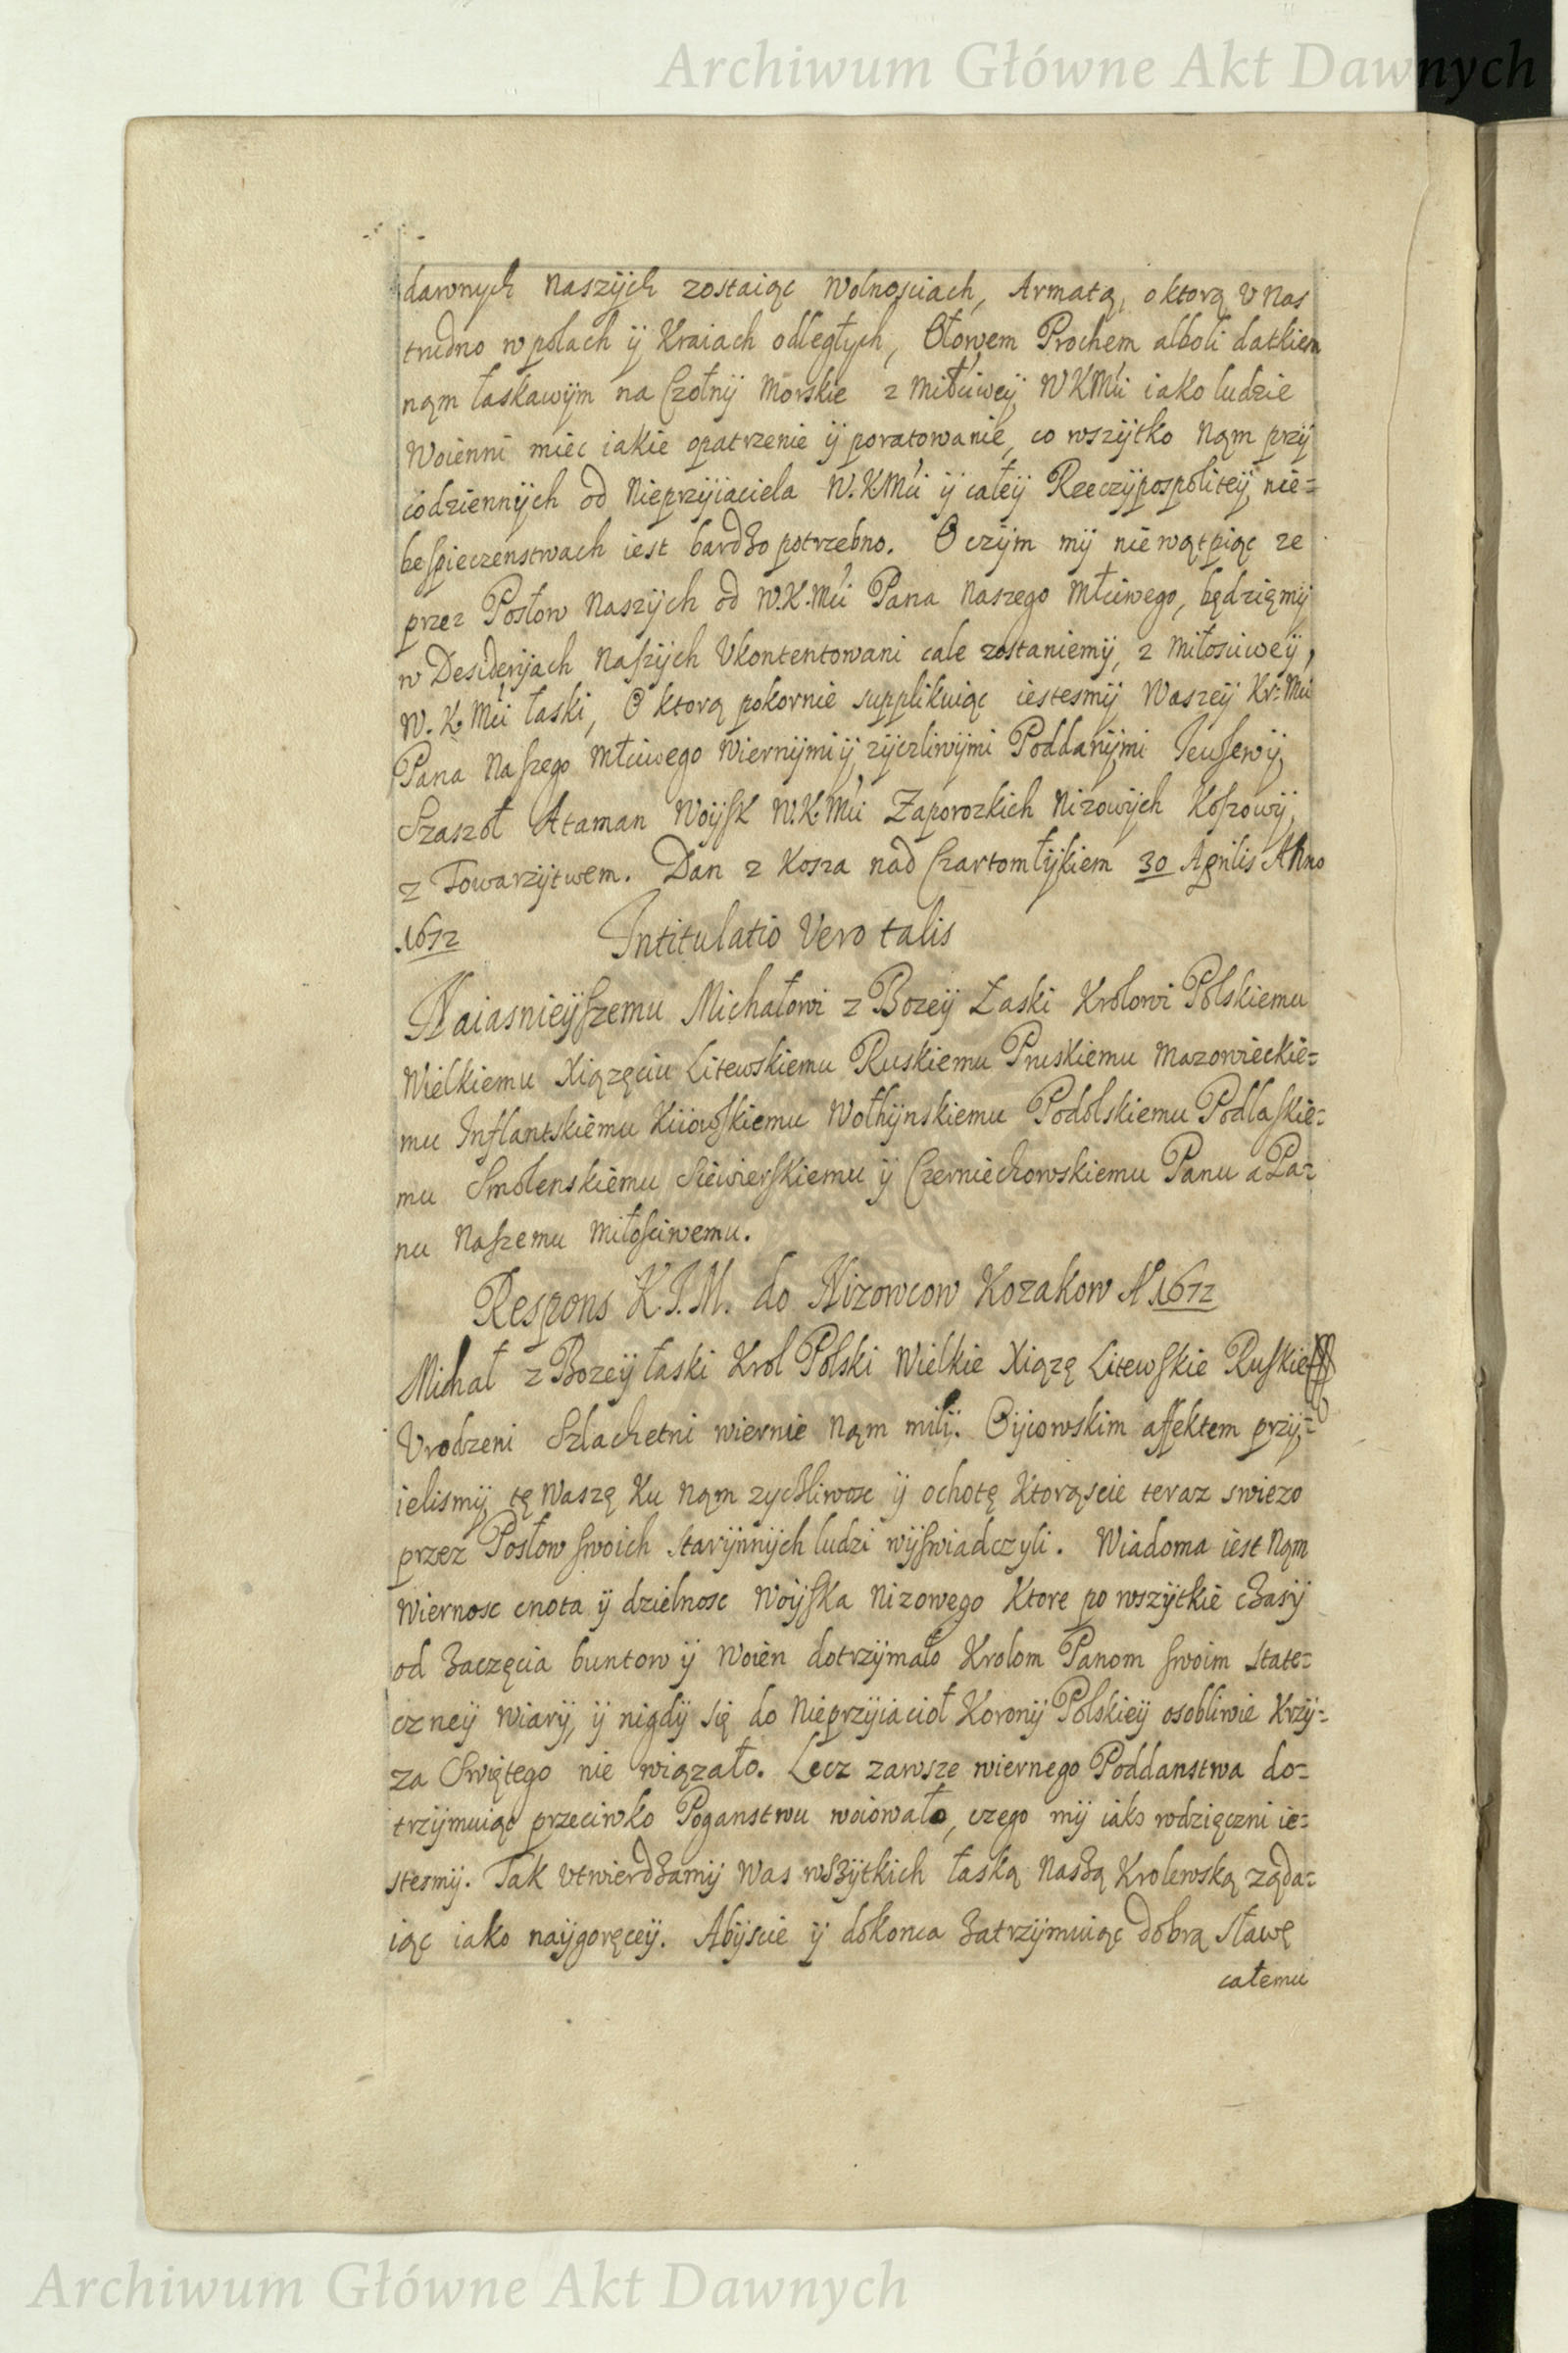 Archiwum Główne Akt Dawnych
dawnych naszÿch zostaiąc wolnosciach, Armatą, o ktorą v nas
trudno w polach ÿ Kraiach odległych, Ołowem Prochem alboli datkiem
nąm łaskawÿm na Czołnÿ Morskie z Miłciweÿ WKMci iako ludzie
Woienni miec iakie opatrzenie ÿ poratowanie, co wszÿtko nąm przÿ
codziennÿch od Nieprzÿiaciela W.KMci ÿ całeÿ Rzeczÿpospoliteÿ nie=
bespieczenstwach iest bardzo potrzebno. O czÿm mÿ nie wątpiąc ze
przez Posłow naszÿch od W.K.Mci Pana naszego Młciwego, będzięmÿ
w Desiderÿach naszÿch Vkontentowani cale zostaniemÿ, z miłosciweÿ,
W.K.Mci łaski, O ktorą pokornie supplikuiąc iestesmÿ Waszeÿ Kr: Mci
Pana Naszego Młciwego wiernÿmi ÿ zÿczliwÿmi Poddanÿmi Jeusewÿ
Szaszoł Ataman Woÿsk W.K.Mci Zaporozkich Nizowÿch Koszowÿ
z Towarzÿtwem. Dan z Kosza nad Czartomłÿkiem 30 Aprilis Anno
1672 Intitulatio Vero talis
Naiasnieÿszemu Michałowi z Bozeÿ Łaski Krolowi Polskiemu
Wielkiemu Xiązęciu Litewskiemu Ruskiemu Pruskiemu Mazowieckie=
mu Inflantskiemu Kiiowskiemu Wołhÿnskiemu Podolskiemu Podlaskie=
mu Smolenskiemu Siewierskiemu ÿ Czerniechowskiemu Panu a Pa=
nu Naszemu Miłosciwemu.
Respons K.J.M. do Nizowcow Kozakow A 1672
Michał z Bozeÿ łaski Krol Polski Wielkie Xiązę Litewskie Ruskie
Vrodzeni Szlachetni wiernie nąm mili. Oÿcowskim affektem przÿ=
ielismÿ tę Waszę Ku nąm zyczliwosc ÿ ochotę Ktorąscie teraz swiezo
przez Posłow swoich starÿnnÿch ludzi wÿswiadczyli. Wiadoma iest nąm
Wiernosc cnota ÿ dzielnosc Woÿska Nizowego Ktore po wszÿtkie czasÿ
od zaczęcia buntow ÿ Woien dotrzÿmało Krolom Panom swoim state=
czneÿ Wiarÿ, ÿ nigdÿ się do Nieprzÿiacioł Koronÿ Polskieÿ osobliwie Krzÿ=
za Swiętego nie wiązało. Lecz zawsze wiernego Poddanstwa do=
trzÿmuiąc przeciwko Poganstwu woiowało, czego mÿ iako wdzięczni ie=
stesmÿ. Tak vtwierdzamÿ Was wszÿtkich łaską naszą Krolewską ządа=
iąc iako naÿgoręceÿ. Abÿscie ÿ dokonca zatrzÿmuiąc dobrą sławę
całemu
Archiwum Główne Akt Dawnych